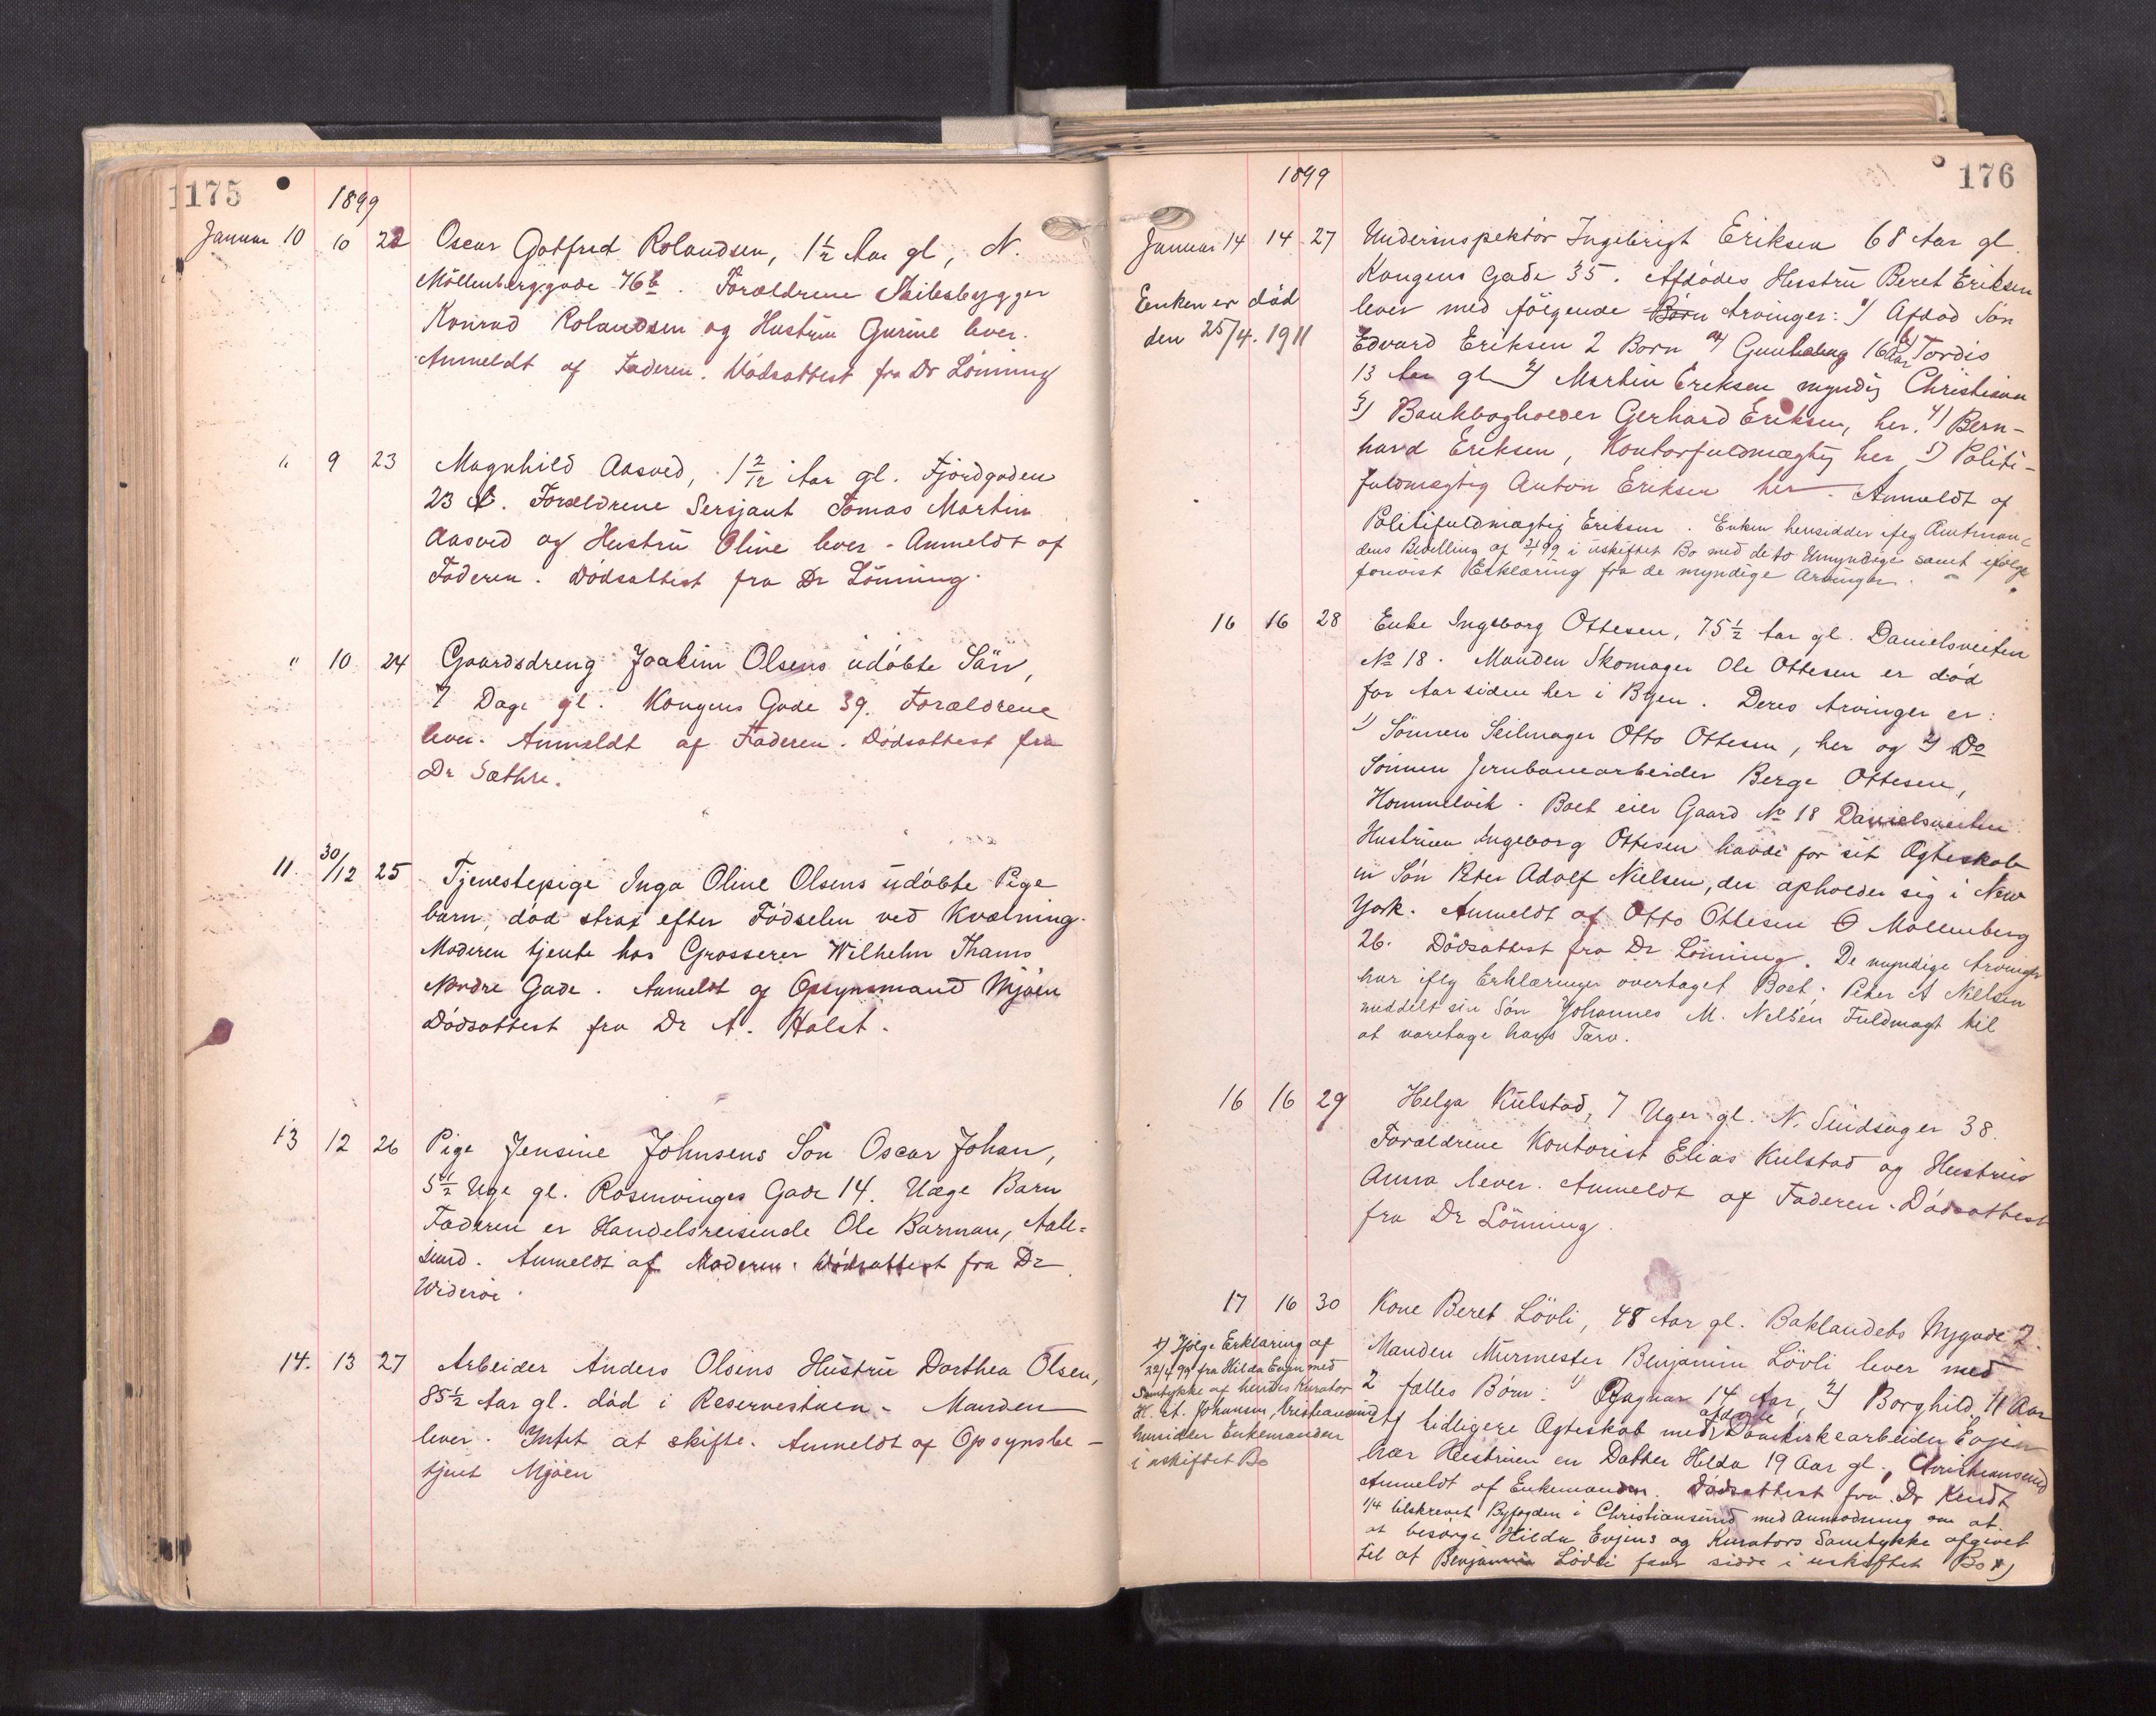 1175
1899
Januar 10 10 22 Oscar Gotfred Rolandsen, 1 1/2 Aar gl, N.
Möllenberggade 76b. Forældrene Skibsbygger
Konrad Rolandsen og Hustru Gurine lever.
Anmeldt af Faderen. Dödsattest fra Dr Lönning
" 9 23 Magnhild Aasved, 1 2/12 Aar gl. Fjordgaden
23 b. Forældrene Sersjant Tomas Martin
Aasved og Hustru Oline lever. Anmeldt af
Faderen. Dödsattest fra Dr Lönning.
" 10 24 Gaardsdreng Joakim Olsens udöbte Sön,
7 Dage gl. Kongens Gade 39. Forældrene
lever. Anmeldt af Faderen. Dödsattest fra
Dr Sæthre.
11. 30/12 25 Tjenestepige Inga Oline Olsens udöbte Pige
barn, död strax efter Födselen ved Kvælning.
Moderen tjente hos Grosserer Wilhelm Thams
Nordre Gade. Anmeldt af Opsynsmand Mjöen
Dödsattest fra Dr A. Holst.
13 12 26 Pige Jensine Johnsens Sön Oscar Johan,
5 1/2 Uge gl. Rosenvinges Gade 14. Uægte Barn
Faderen er Handelsreisende Ole Barman, Aale-
sund. Anmeldt af Moderen. Dödsattest fra Dr
Wideröe.
14. 13 27 Arbeider Anders Olsens Hustru Dorthea Olsen,
85 1/2 Aar gl. död i Reservestuen. Manden
lever. Intet at skifte. Anmeldt af Opsynsbe-
tjent Mjöen
176
1899
Januar 14 14 27 Underinspektör Ingebrigt Eriksen 68 Aar gl.
Kongens Gade 35. Afdödes Hustru Beret Eriksen
Enken er död
den 25/4. 1911
lever med fölgende Börn Arvinger: 1) Afdöd Sön
Edvard Eriksen 2 Born a) Gunhaug 16 Aar b) Tordis
13 Aar gl 2) Martin Eriksen myndig Christiania
3) Bankbogholder Gerhard Eriksen, her. 4) Bern-
hard Eriksen, Kontorfuldmægtig her 5) Politi-
fuldmægtig Anton Eriksen her. Anmeldt af
Politifuldmægtig Eriksen. Enken hensidder iflg Amtman-
dens Bevilling af 99 i uskiftet Bo med de to Umyndige samt ifölge
forevist Erklæring fra de myndige Arvinger.
16 16 28 Enke Ingeborg Ottesen, 75 1/2 Aar gl. Danielsveiten
No 18. Manden Skomager Ole Ottesen er död
for Aar siden her i Byen. Deres Arvinger er:
1) Sönnen Seilmager Otto Ottesen, her og 2) Do
Sönnen Jernbanearbeider Berge Ottesen,
Hommelvik. Boet eier Gaard No 18 Danielsveiten
Hustruen Ingeborg Ottesen havde för sit Ægteskab
en Sön Peter Adolf Nielsen, der opholder sig i New
York. Anmeldt af Otto Ottesen Ö Møllenberg
26. Dödsattest fra Dr Lönning. De myndige Arvinger
har iflg Erklæringer overtaget Boet. Peter A Nielsen
meddelt sin Sön Johannes M. Nelsen Fuldmagt til
at varetage hans Tarv.
16 16 29 Helga Kulstad, 7 Uger gl. N. Sindsager 38.
Forældrene Kontorist Elias Kulstad og Hustru
Anna lever. Anmeldt af Faderen. Dödsattest
fra Dr Lönning.
17 16 30 Kone Beret Lövli, 48 Aar gl. Baklandets Nygade 2.
Manden Murmester Benjamin Lövli lever med
2 fælles Börn: 1) Ragnar 14 Aar, 2) Borghild 11 Aar
Af tidligere Ægteskab med afdöde Domkirkearbeider Evjen
har Hustruen en Datter Hilda 19 Aar gl., Christiansund
Anmeldt af Enkemanden. Dödsattest fra Dr Kindt
1/4 tilskrevet Byfogden i Christiansund med Anmodning om at
at besörge Hilda Evjens og Kurators Samtykke afgivet
til at Benjamin Lövli faar sidde i uskiftet Bo *)
*) Ifölge Erklæring af
22/4 99 fra Hilda Evjen med
Samtykke af hendes Kurator
H. A. Johansen, Kristiansund
hensidder Enkemanden
i uskiftet Bo